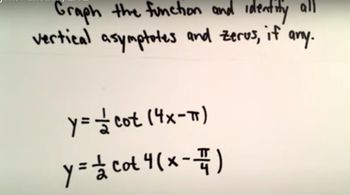 Graph the function and identify all
vertical asymptotes and zeros, if any.
y = 1/2 cot (4x-π)
y = 1/2 cot 4(x - π/4)